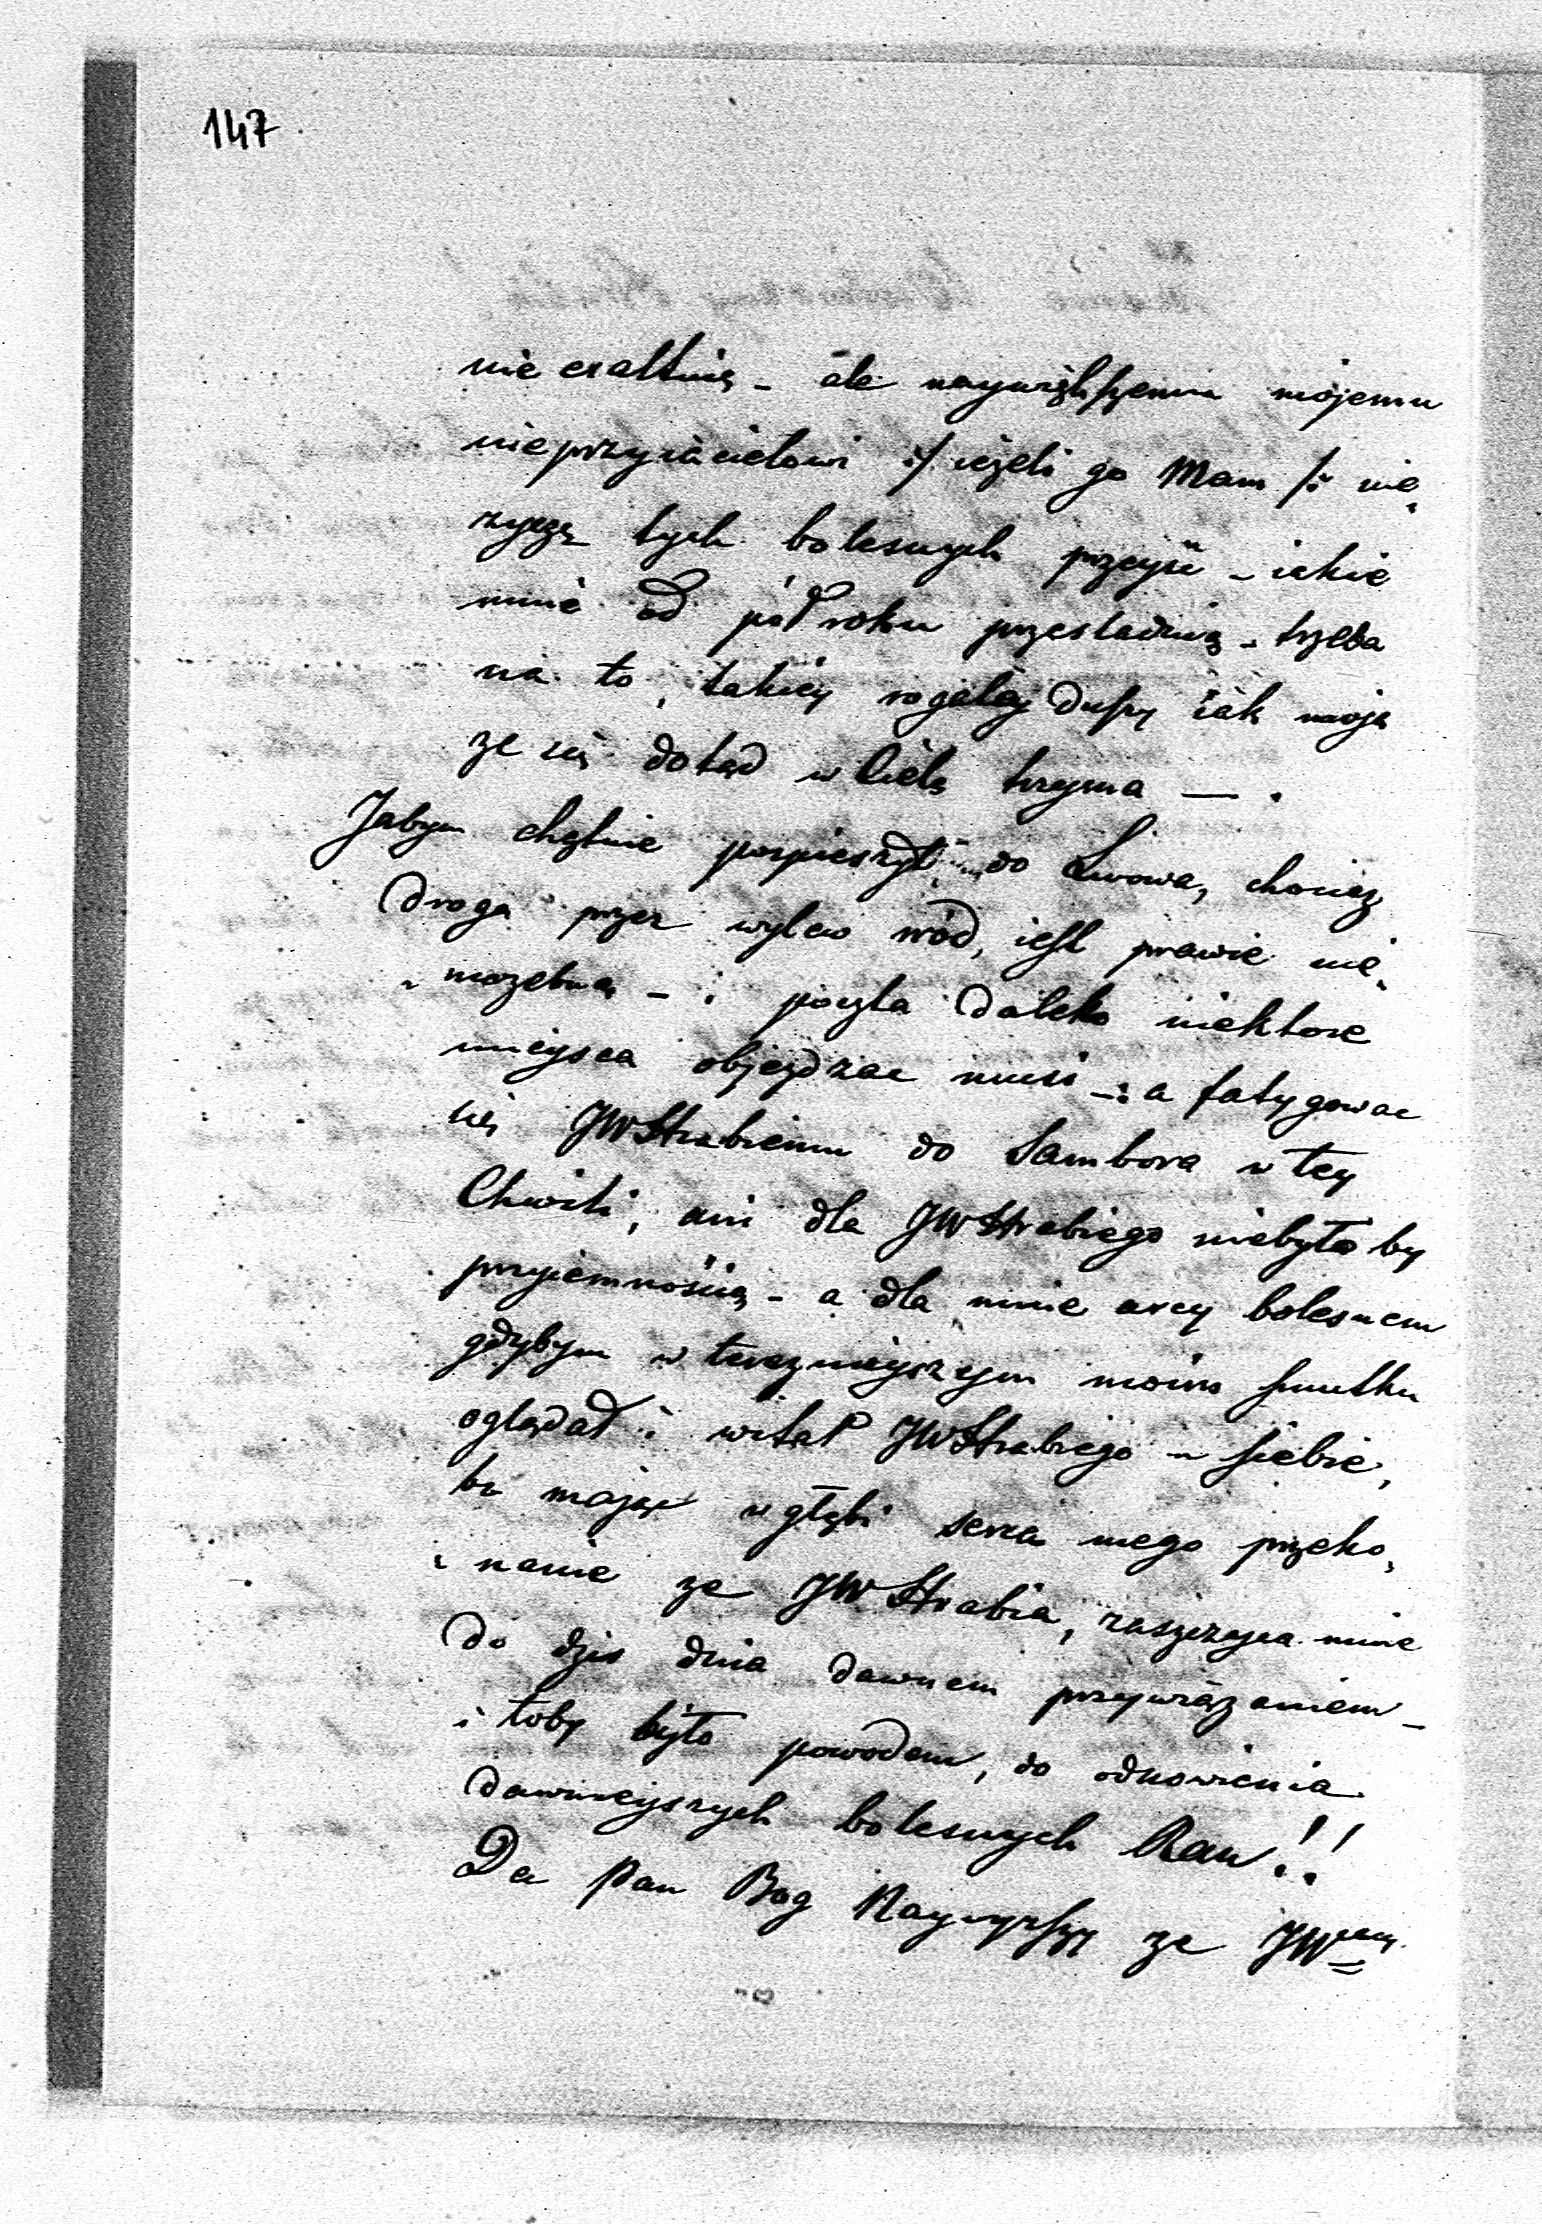 147
nie exaltuię - ale naywiększemu mojemu
nieprzyiacielowi :/ ieżeli go Mam /: nie,
zyczę tych bolesnych przeyść - iakie
mnie od pół roku prześladuią - trzeba
na to, takiey rogatey duszy iak moja
ze się dotąd w ciele trzyma — .
Jabym chętnie pospieszył do Lwowa, chociaz
droga przez wylew wód, iest prawie nie,
„ mozebną - i poczta daleko niektore
mieysca objezdzac musi -: a fatygowac
się JWHrabiemu do Sambora w tey
Chwili, ani dla JWHrabiego niebyło by
przyiemnością - a dla mnie arcy bolesnem
gdybym w terazniejszym moim smutku
oglądał i witał JWHrabiego u siebie,
bo mając w głębi serca mego przeko,
„ nanie ze JWHrabia, zaszczyca mnie
do dzis dnia dawnem przywiązaniem -
i toby było powodem, do odnowienia
dawnieyszych bolesnych Ran!!
Da Pan Bog Naywyzszy ze JW